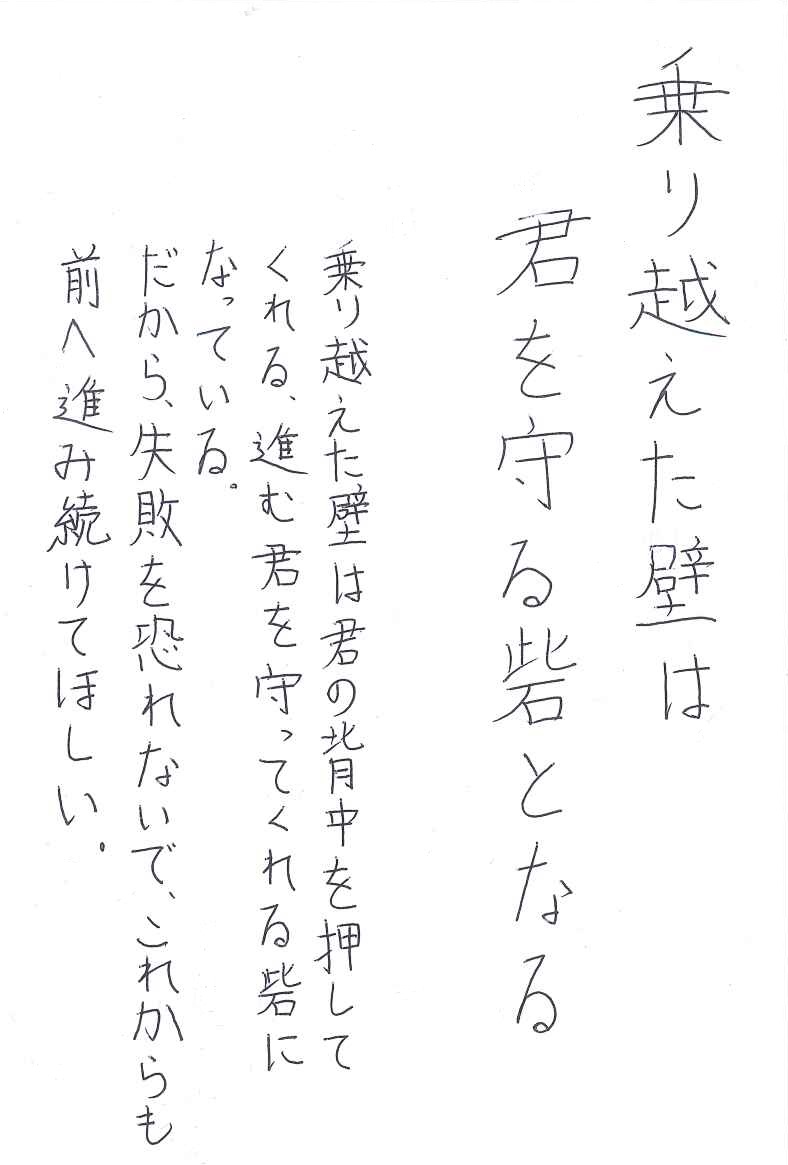 乗り越えた壁は
君を守る砦となる
乗り越えた壁は君の背中を押して
くれる、進む君を守ってくれる砦に
なっている。
だから、失敗を恐れないで、これからも
前へ進み続けてほしい。